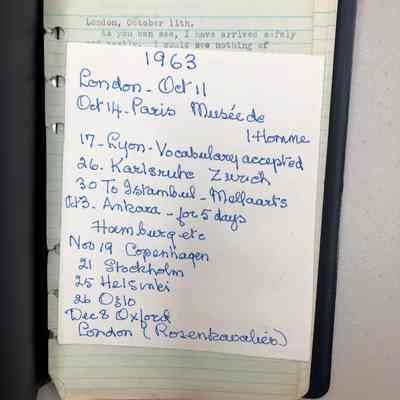 London, October 11th.
As you can see, I have arrived safely
I would see nothing of
1963
London - Oct 11
Oct 14 - Paris Musée de
l'Homme
17 - Lyon - Vocabulary accepted
26. Karlsruhe Zurich
30 To Istanbul - Mellaarts
Oct 3. Ankara - for 5 days
Hamburg etc
Nov 19 Copenhagen
21 Stockholm
25 Helsinki
26 Oslo
Dec 8 Oxford
London (Rosenkavalier)